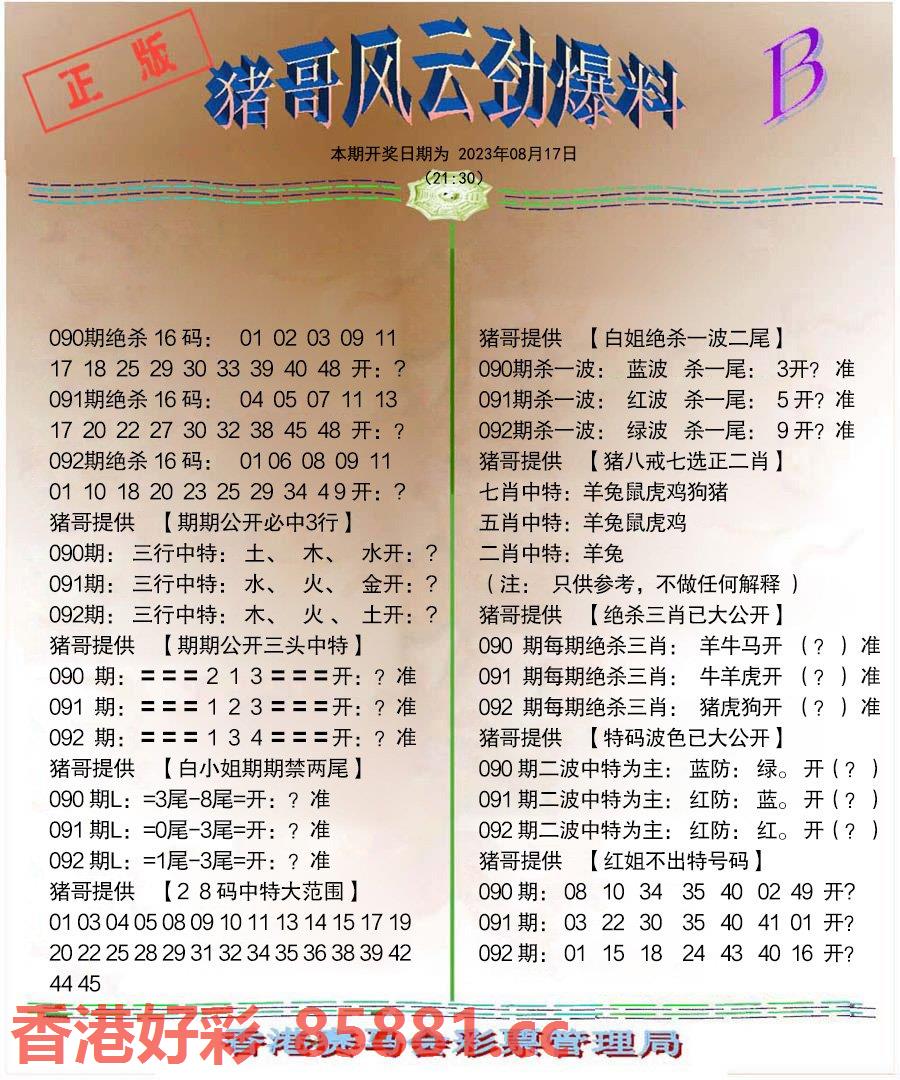 正版
猪哥风云劲爆料
B
本期开奖日期为 2023年08月17日
(21:30)
090期绝杀 16 码： 01 02 03 09 11
17 18 25 29 30 33 39 40 48 开：?
091期绝杀 16 码： 04 05 07 11 13
17 20 22 27 30 32 38 45 48 开：?
092期绝杀 16 码： 01 06 08 09 11
01 10 18 20 23 25 29 34 4 9 开：?
猪哥提供 【期期公开必中3行】
090期： 三行中特： 土、 木、 水开：?
091期： 三行中特： 水、 火、 金开：?
092期： 三行中特： 木、 火、 土开：?
猪哥提供 【期期公开三头中特】
090 期：===2 1 3===开：? 准
091 期：===1 2 3===开：? 准
092 期：===1 3 4===开：? 准
猪哥提供 【白小姐期期禁两尾】
090 期L：=3尾-8尾=开：? 准
091 期L：=0尾-3尾=开：? 准
092 期L：=1尾-3尾=开：? 准
猪哥提供 【2 8 码中特大范围】
01 03 04 05 08 09 10 11 13 14 15 17 19
20 22 25 28 29 31 32 34 35 36 38 39 42
44 45
猪哥提供 【白姐绝杀一波二尾】
090期杀一波： 蓝波 杀一尾： 3开? 准
091期杀一波： 红波 杀一尾： 5 开? 准
092期杀一波： 绿波 杀一尾： 9 开? 准
猪哥提供 【猪八戒七选正二肖】
七肖中特：羊兔鼠虎鸡狗猪
五肖中特：羊兔鼠虎鸡
二肖中特：羊兔
（注： 只供参考，不做任何解释 ）
猪哥提供 【绝杀三肖已大公开】
090 期每期绝杀三肖： 羊牛马开 （? ）准
091 期每期绝杀三肖： 牛羊虎开 （? ）准
092 期每期绝杀三肖： 猪虎狗开 （? ）准
猪哥提供 【特码波色已大公开】
090 期二波中特为主：蓝防：绿。开(? )
091 期二波中特为主：红防：蓝。开(? )
092 期二波中特为主：红防：红。开(? )
猪哥提供 【红姐不出特号码】
090 期： 08 10 34 35 40 02 49 开?
091 期： 03 22 30 35 40 41 01 开?
092 期： 01 15 18 24 43 40 16 开?
香港好彩 85881.cc
香港赛马会彩票管理局